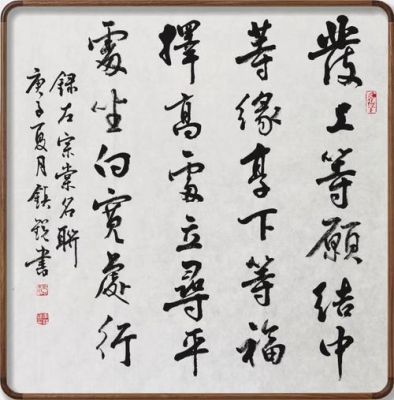 發上等願結中
等緣享下等福
擇高處立尋平
處坐向寬處行
錄左宗棠名聯
庚子夏月鎮書